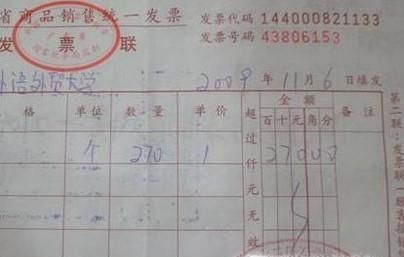 省商品销售统一发票 发票代码 144000821133
发票联 发票号码 43806153
外语外贸大学 2009年11月6日填发
格 单位 数量 单价 金额 备注
百十元角分
个 270 1 27000
超过仟元无效
第二联:发票联